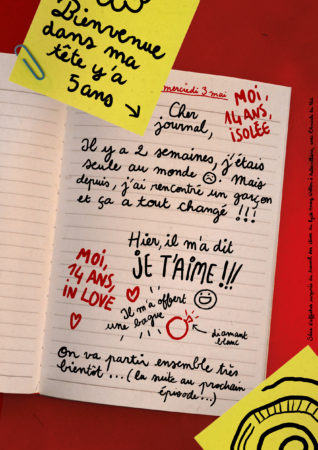 Bienvenue
dans ma
tête y'a
5 ans
mercredi 3 mai
Cher
journal,
MOI,
14 ANS,
ISOLÉE
Il y a 2 semaines, j'étais
seule au monde ☹. Mais
depuis, j'ai rencontré un garçon
et ça a tout changé !!!
Hier, il m'a dit
JE T'AIME !!!
MOI,
14 ANS,
IN LOVE
Il m'a offert
une bague
diamant
blanc
On va partir ensemble très
bientôt... (la suite au prochain
épisode...)